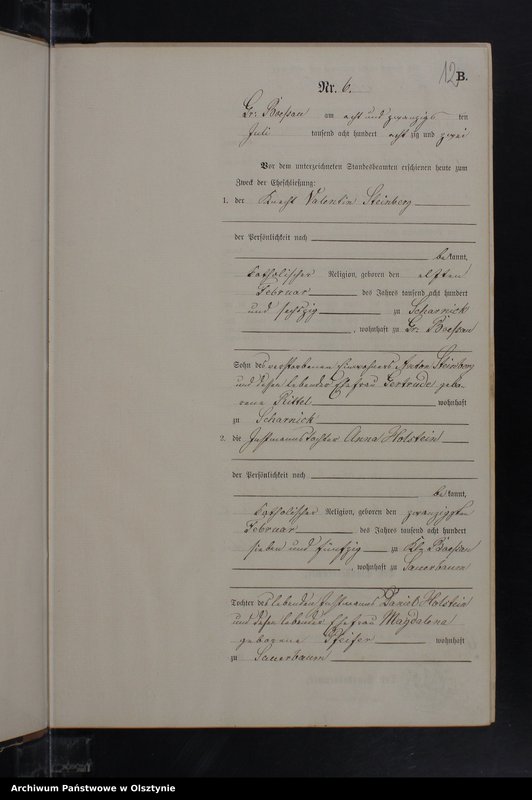 12 B.
Nr. 6.
Gr. Boessau am acht und zwanzigsten
Juli tausend acht hundert achtzig und zwei
Vor dem unterzeichneten Standesbeamten erschienen heute zum
Zweck der Eheschließung:
1. der Knecht Valentin Steinberg
der Persönlichkeit nach
bekannt,
katholischer Religion, geboren den elften
Februar des Jahres tausend acht hundert
und sechszig zu Scharnick
, wohnhaft zu Gr. Boessau
Sohn des verstorbenen Einwohners Anton Steinberg
und dessen lebender Ehefrau Gertrude gebo-
rene Rittel wohnhaft
zu Scharnick
2. die Instmannstochter Anna Holstein
der Persönlichkeit nach
bekannt,
katholischer Religion, geboren den zwanzigsten
Februar des Jahres tausend acht hundert
sieben und fünfzig zu Kl. Boessau
, wohnhaft zu Sauerbaum
Tochter des lebenden Instmanns Daniel Holstein
und dessen lebender Ehefrau Magdalena
geborene Pfeifer wohnhaft
zu Sauerbaum
Archiwum Państwowe w Olsztynie